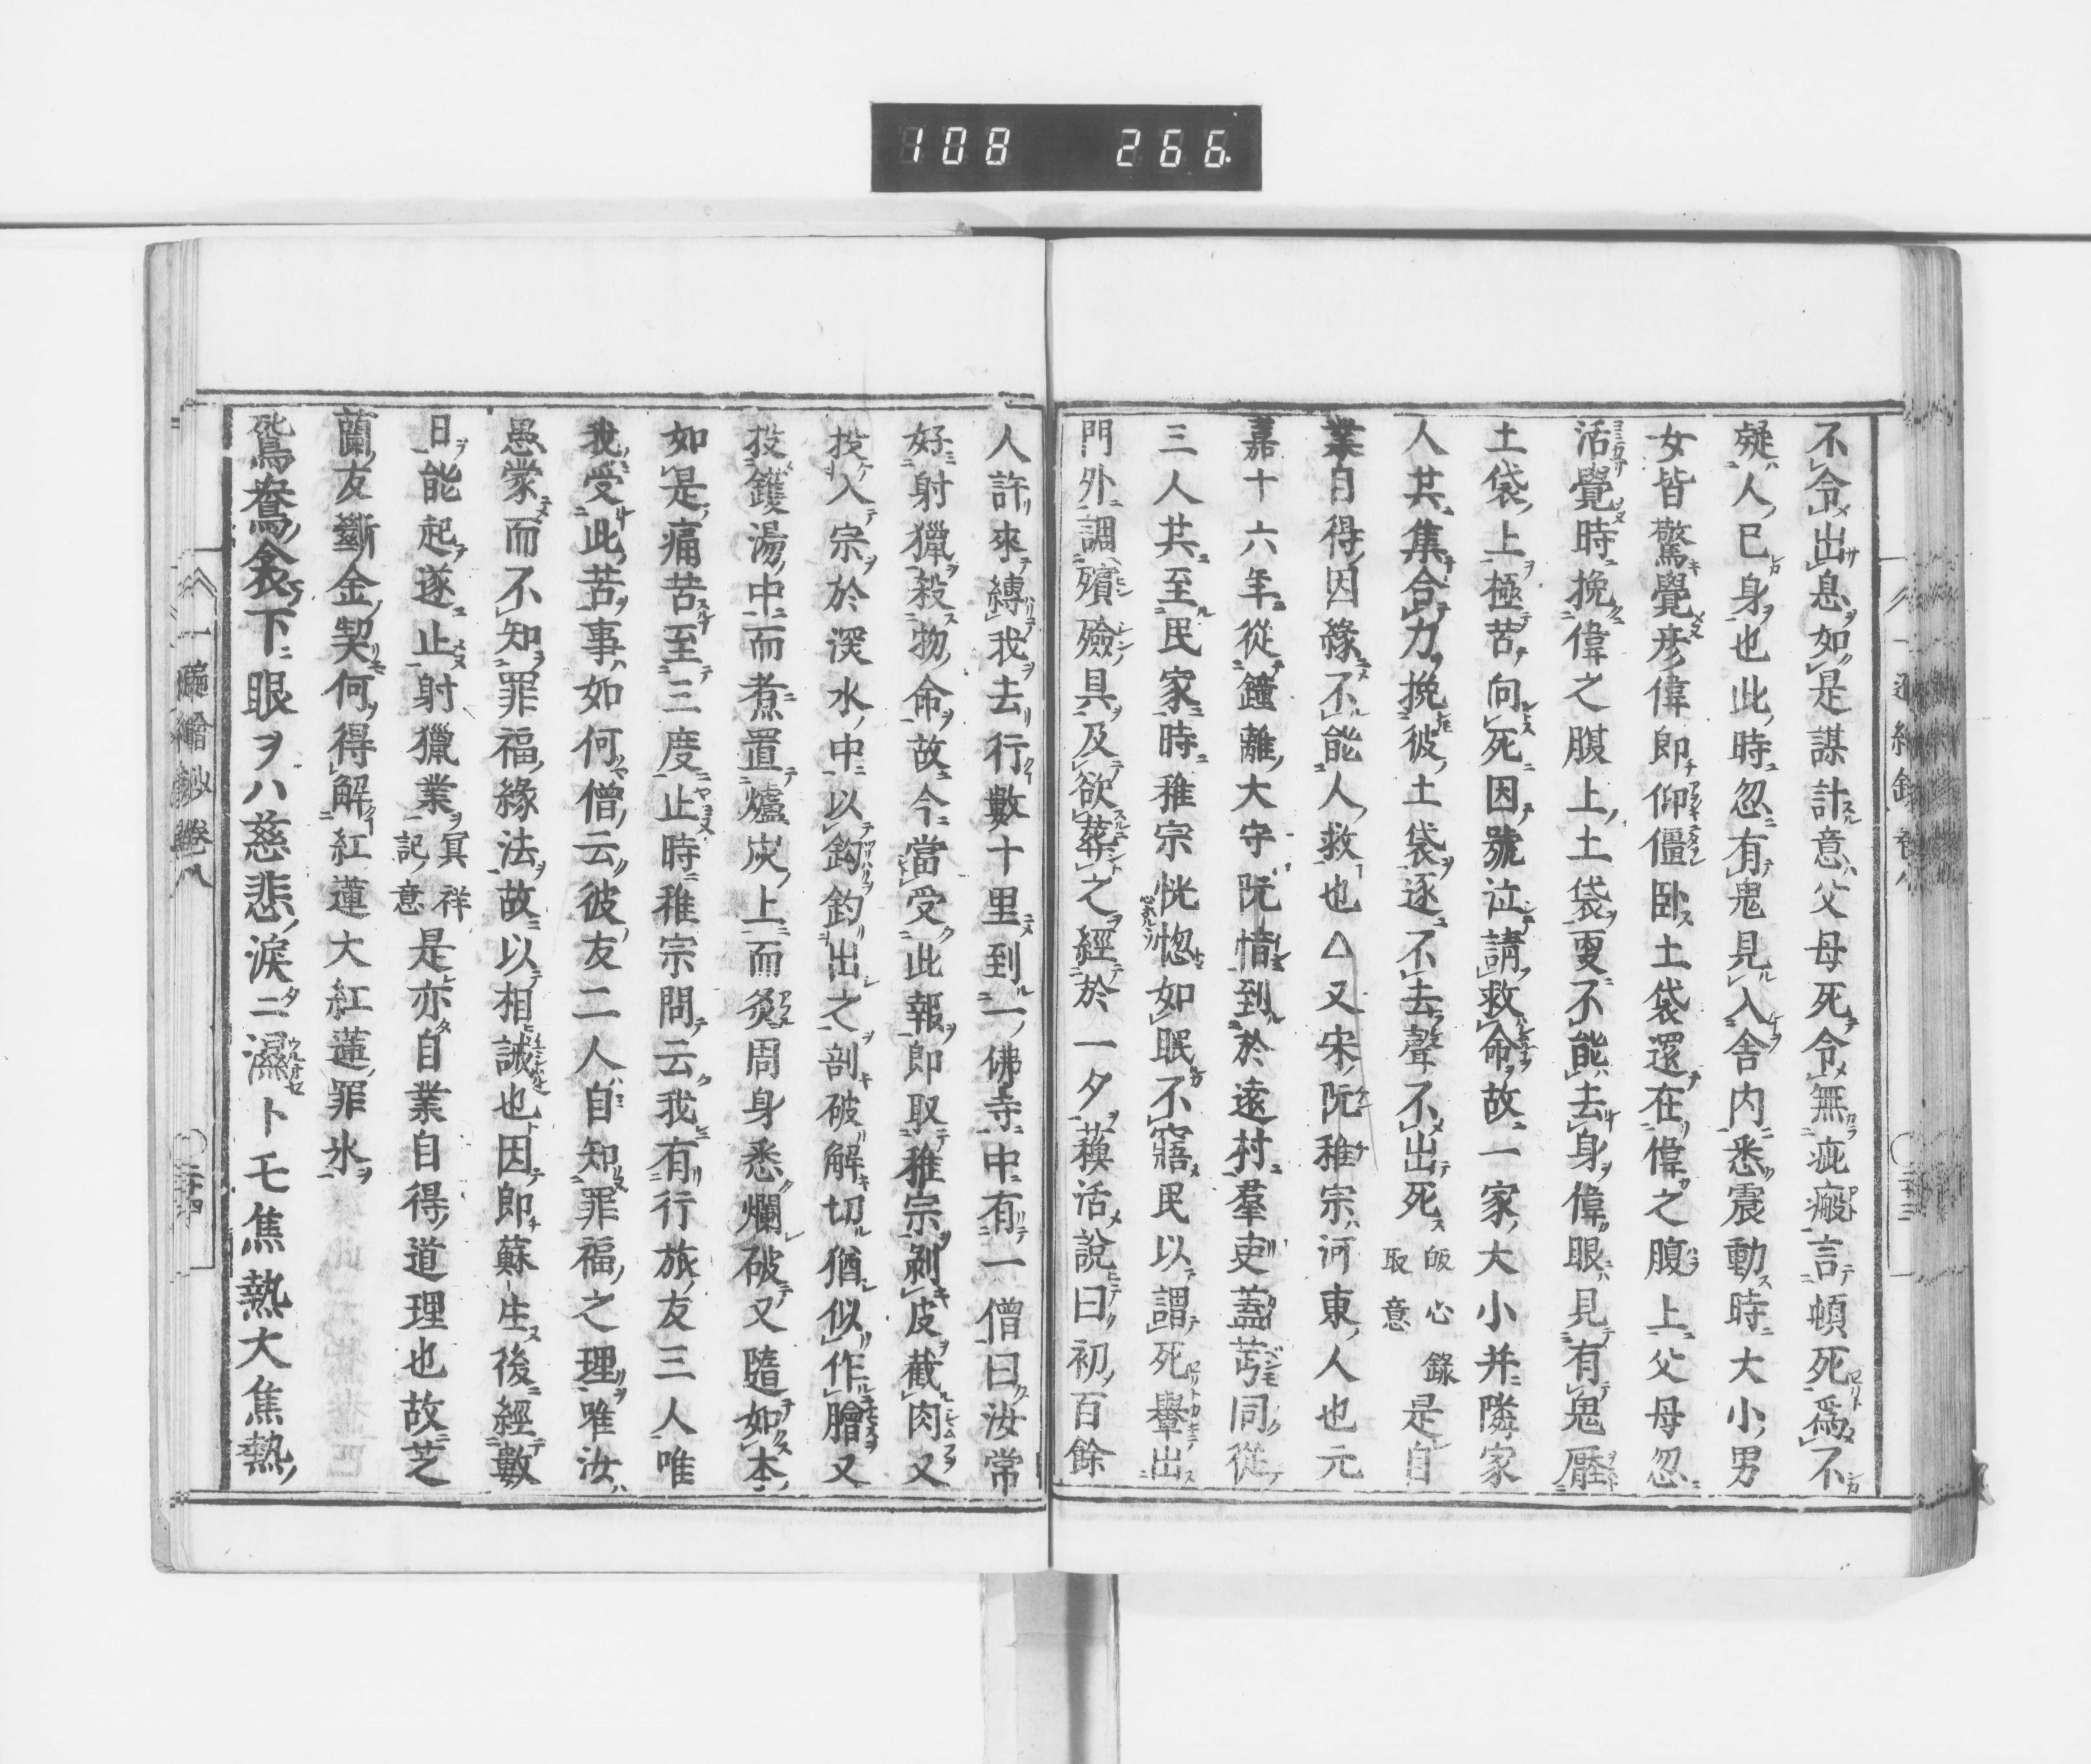 108 266
不令出息如是謀計意父母死令無疵瘢言頓死爲不
疑人已身也此時忽有鬼見入舎内悉震動時大小男
女皆驚覺彦偉即仰僵臥土袋還在偉之腹上父母忽
活覺時挽偉之腹上土袋更不能去身偉眼見有鬼壓
土袋上極苦向死因號泣請救命故一家大小并隣家
人共集合力挽彼土袋逐不去聲不出死 皈心錄取意 是自
業自得因緣不能人救也△又宋阮稚宗河東人也元
嘉十六年從鐘離大守阮愔到於遠村羣吏蓋苟同從
三人共至民家時稚宗恍惚如眠不寤民以謂死轝出
門外調殯殮具及欲葬之經於一夕蘇活說曰初百餘
人許來縛我去行數十里到一佛寺中有一僧曰汝常
好射獵殺物命故今當受此報即取稚宗剥皮截肉又
投入宗於深水中以鈎釣出之剖破解切猶似作膾又
投鑊湯中而煮置爐炭上而炙周身悉爛破又隨如本
如是痛苦至三度止時稚宗問云我有行旅友三人唯
我受此苦事如何僧云彼友二人自知罪福之理唯汝
愚蒙而不知罪福緣法故以相誡也因即蘇生後經數
日能起遂止射獵業 冥祥記意 是亦自業自得道理也故芝
蘭友斷金契何得解紅蓮大紅蓮罪氷
鴛鴦衾下眼ヲハ慈悲淚ニ濕トモ焦熱大焦熱
卷八